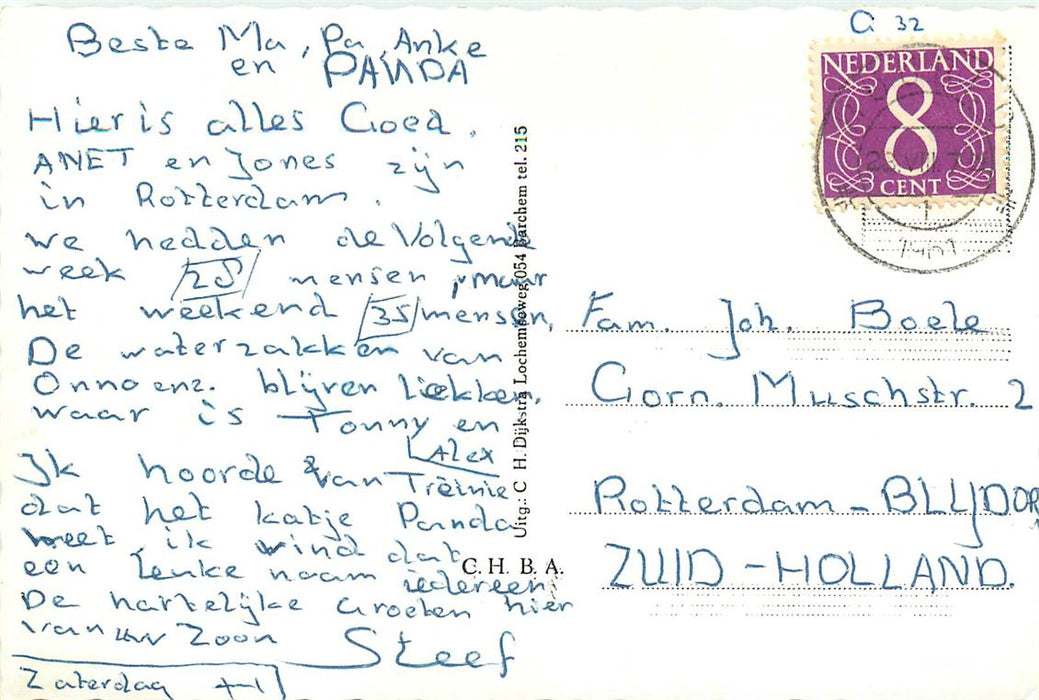 Beste Ma, Pa, Anke
en PANDA
Hier is alles Goed.
ANET en Jones zijn
in Rotterdam.
we hedden de Volgende
week 28 mensen, maar
het weekend 35 mensen,
De waterzakken van
Onno enz. blijven liekken,
waar is Tonny en
Alex
Ik hoorde van Treinie
dat het katje Panda
heet, ik vind dat
een leuke naam iedereen
De hartelijke Groeten hier
van uw Zoon
Steef
Zaterdag
Uitg.: C. H. Dijkstra Lochemseweg 054 Barchem tel. 215
C. H. B. A.
G 32
NEDERLAND
8
CENT
1
1961
Fam. Joh. Boele
Corn. Muschstr. 2
Rotterdam - BLIJDOR
ZUID - HOLLAND.